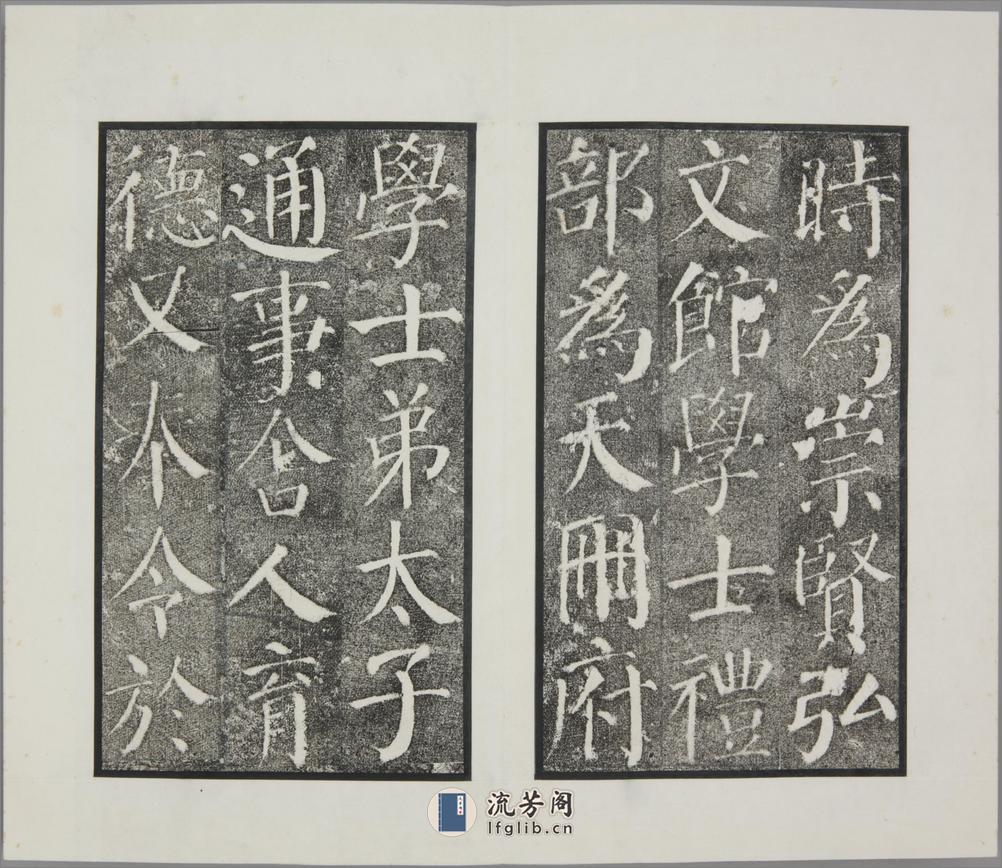 時為崇賢弘
文館學士禮
部為天冊府
學士弟太子
通事舍人育
德又本令於
流芳阁
lfglib.cn